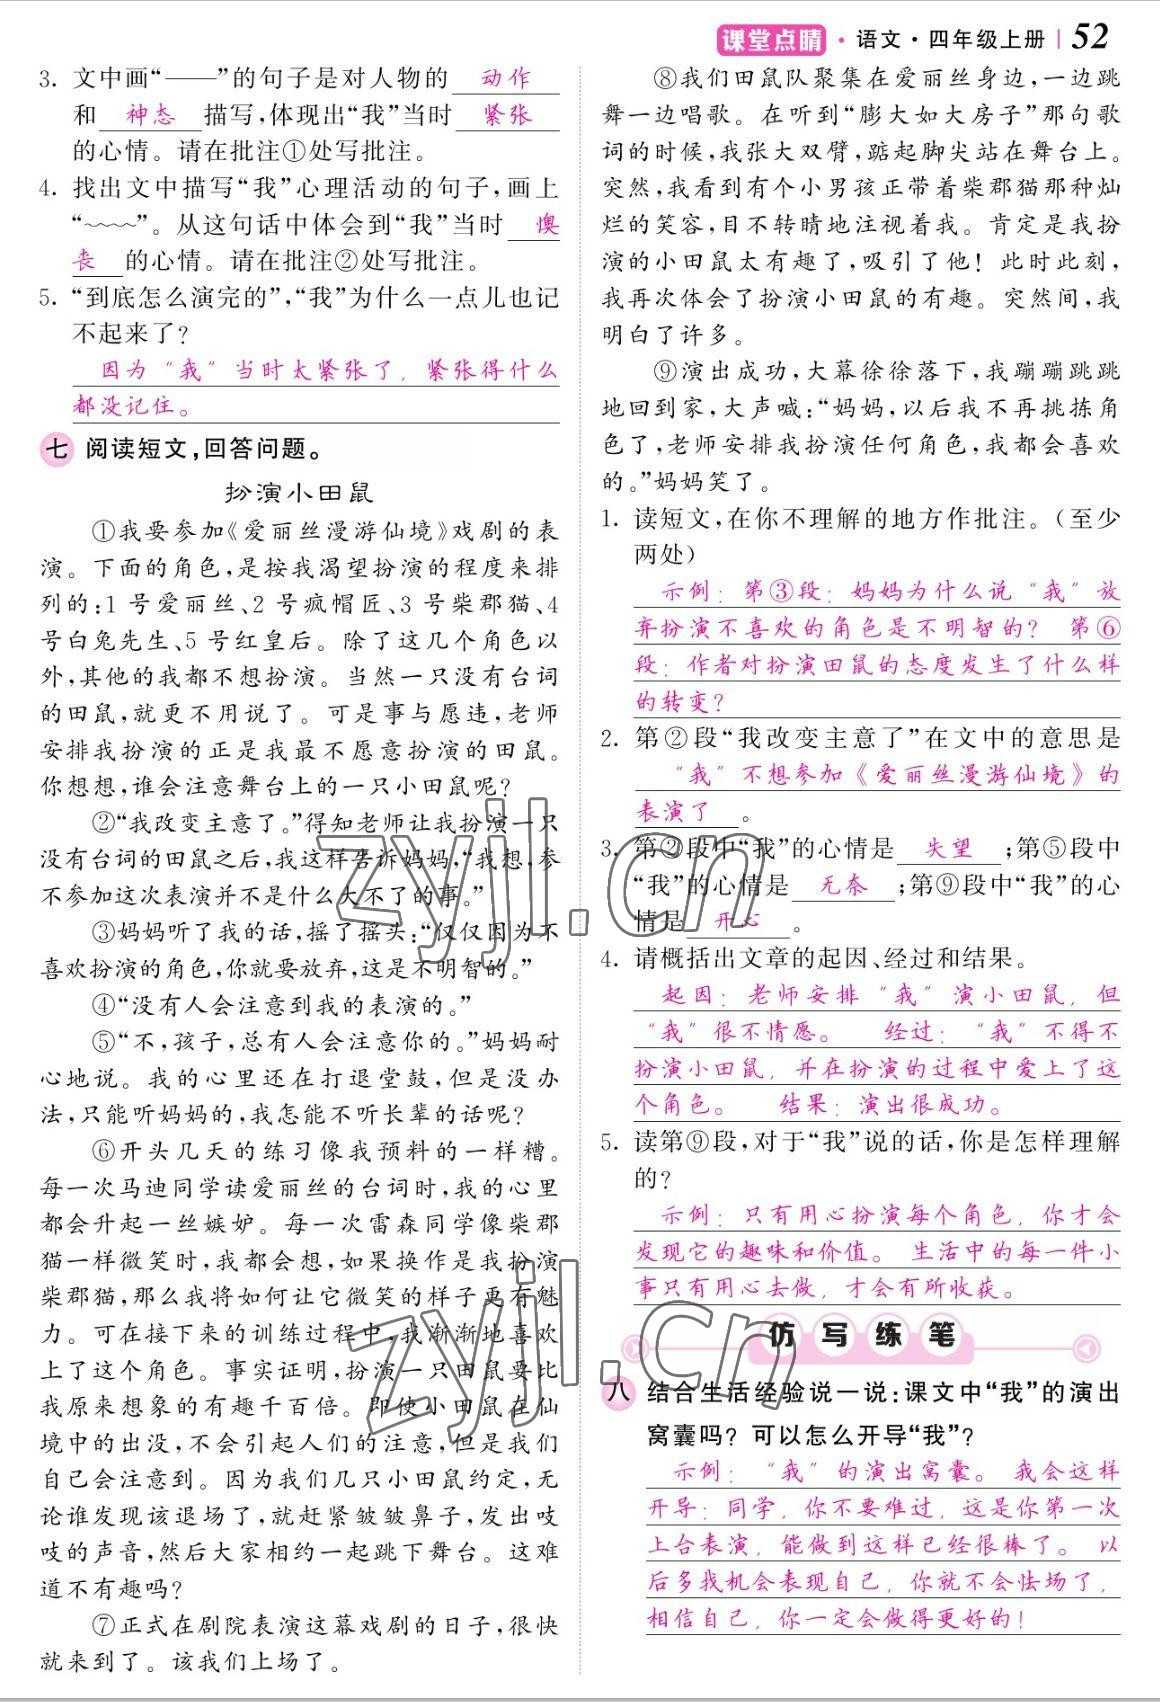 课堂点睛·语文·四年级上册 52
3. 文中画“——”的句子是对人物的 动作
和 神态 描写,体现出“我”当时 紧张
的心情。请在批注①处写批注。
4. 找出文中描写“我”心理活动的句子,画上
“﹏﹏”。从这句话中体会到“我”当时 懊
丧 的心情。请在批注②处写批注。
5. “到底怎么演完的”,“我”为什么一点儿也记
不起来了?
因为“我”当时太紧张了,紧张得什么
都没记住。
七 阅读短文,回答问题。
扮演小田鼠
①我要参加《爱丽丝漫游仙境》戏剧的表
演。下面的角色,是按我渴望扮演的程度来排
列的:1号爱丽丝、2号疯帽匠、3号柴郡猫、4
号白兔先生、5号红皇后。除了这几个角色以
外,其他的我都不想扮演。当然一只没有台词
的田鼠,就更不用说了。可是事与愿违,老师
安排我扮演的正是我最不愿意扮演的田鼠。
你想想,谁会注意舞台上的一只小田鼠呢?
②“我改变主意了。”得知老师让我扮演一只
没有台词的田鼠之后,我这样告诉妈妈,“我想,参
不参加这次表演并不是什么大不了的事。”
③妈妈听了我的话,摇了摇头:“仅仅因为不
喜欢扮演的角色,你就要放弃,这是不明智的。”
④“没有人会注意到我的表演的。”
⑤“不,孩子,总有人会注意你的。”妈妈耐
心地说。我的心里还在打退堂鼓,但是没办
法,只能听妈妈的,我怎能不听长辈的话呢?
⑥开头几天的练习像我预料的一样糟。
每一次马迪同学读爱丽丝的台词时,我的心里
都会升起一丝嫉妒。每一次雷森同学像柴郡
猫一样微笑时,我都会想,如果换作是我扮演
柴郡猫,那么我将如何让它微笑的样子更有魅
力。可在接下来的训练过程中,我渐渐地喜欢
上了这个角色。事实证明,扮演小田鼠要比
我原来想象的有趣千百倍。即使小田鼠在仙
境中的出没,不会引起人们的注意,但是我们
自己会注意到。因为我们几只小田鼠约定,无
论谁发现该退场了,就赶紧皱皱鼻子,发出吱
吱的声音,然后大家相约一起跳下舞台。这难
道不有趣吗?
⑦正式在剧院表演这幕戏剧的日子,很快
就来到了。该我们上场了。
⑧我们田鼠队聚集在爱丽丝身边,一边跳
舞一边唱歌。在听到“膨大如大房子”那句歌
词的时候,我张大双臂,踮起脚尖站在舞台上。
突然,我看到有个小男孩正带着柴郡猫那种灿
烂的笑容,目不转睛地注视着我。肯定是我扮
演的小田鼠太有趣了,吸引了他!此时此刻,
我再次体会了扮演小田鼠的有趣。突然间,我
明白了许多。
⑨演出成功,大幕徐徐落下,我蹦蹦跳跳
地回到家,大声喊:“妈妈,以后我不再挑拣角
色了,老师安排我扮演任何角色,我都会喜欢
的。”妈妈笑了。
1. 读短文,在你不理解的地方作批注。(至少
两处)
示例:第③段:妈妈为什么说“我”放
弃扮演不喜欢的角色是不明智的? 第⑥
段:作者对扮演田鼠的态度发生了什么样
的转变?
2. 第②段“我改变主意了”在文中的意思是
“我”不想参加《爱丽丝漫游仙境》的
表演了 。
3. 第②段中“我”的心情是 失望 ;第⑤段中
“我”的心情是 无奈 ;第⑨段中“我”的心
情是 开心 。
4. 请概括出文章的起因、经过和结果。
起因:老师安排“我”演小田鼠,但
“我”很不情愿。 经过:“我”不得不
扮演小田鼠,并在扮演的过程中爱上了这
个角色。 结果:演出很成功。
5. 读第⑨段,对于“我”说的话,你是怎样理解
的?
示例:只有用心扮演每个角色,你才会
发现它的趣味和价值。生活中的每一件小
事只有用心去做,才会有所收获。
仿写练笔
八 结合生活经验说一说:课文中“我”的演出
窝囊吗?可以怎么开导“我”?
示例:“我”的演出窝囊。我会这样
开导:同学,你不要难过,这是你第一次
上台表演,能做到这样已经很棒了。以
后多找机会表现自己,你就不会怯场了,
相信自己,你一定会做得更好的!
zyjl.cn
zyjl.cn